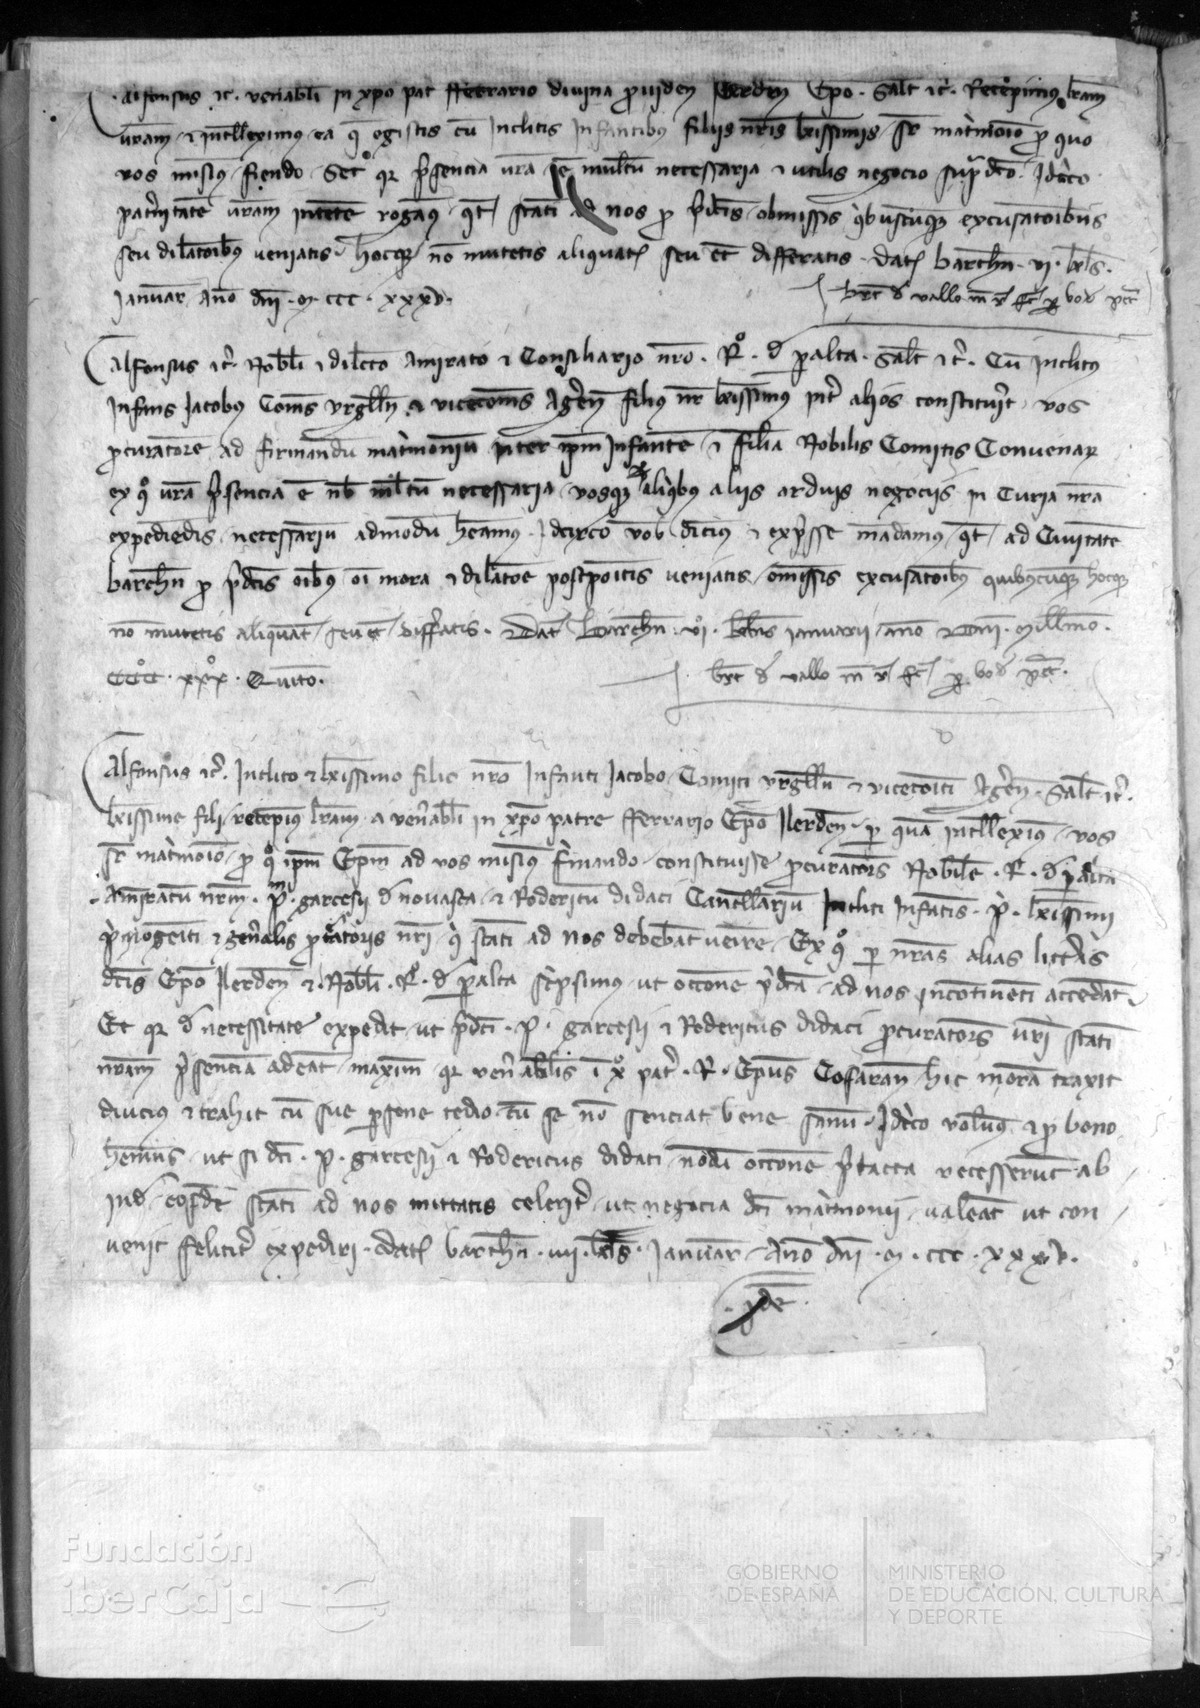 Alfonsus etc. venabli in xpo patri fferrario divina providen Ilerden Epo. Salt etc. Recepimus lram
vram et intelleximus ea que egistis cu Inclitis Infantibus filiis nris krissimis sr matrimonio pro quo
vos misimus fiendo. Set quia presencia vra est multum necessaria et utilis negocio supradco. Idcirco
paternitate vram intente rogamus qt stati ad nos pro predcis obmissis quibuscumque excusatoibus
seu dilatoibus veniatis. hocque no mutetis aliquat seu et differatis. Dat Barchn. vi. kls.
Januar Ano dni. m. ccc. xxxv.
brt d vallo m r fc p bo d pct
Alfonsus etc. Nobli et dilcto Amirato et Consiliario nro. R. d peralta. Salt etc. Cu Inclitus
Infans Jacobus Coms Urgelln et vicecoms Ageren filius nr krissimus int alios constituit vos
procuratore ad firmandu matrimoniu inter ipm Infante et filia Nobilis Comitis Convenar
ex quo vra presencia e nob multu necessaria vosque aliquibus aliis arduis negociis in Curia nra
expediedis necessariu admodu heamus. Idcirco vob dicimus et expresse madamus qt ad Civitate
barchn pro predcis oibus oi mora et dilatoe postpoitis veniatis omissis excusatoibus quibuscuque hocque
no mutetis aliquat seu et differatis. Dat Barchn. vi. klns Januarii ano Dni. millmo.
CCC. xxx. Quinto.
brt d vallo m r fc p bo d pct.
Alfonsus etc. Inclito et krissimo filio nro Infanti Jacobo Comiti Urgelln et vicecoiti Ageren. Salt etc.
krissime fili recepimus lram a venerabli in xpo patre fferrario Epo Ilerden per qua intelleximus vos
sr matrimoio pro quo ipm Epm ad vos misimus firmando constituisse procuratores Nobile. R. d peralta
Amiratum nrm. P. garcesii d novasca et Rodericu didaci Cancellariu Incliti Infantis. P. krissimi
primogeiti et generalis procuratoris nri qui stati ad nos debebat veire. Ex quo per nras alias litteras
dcis Epo Ilerden et Nobli. R. d peralta scripsimus ut occone predca ad nos incontineti accedat.
Et quia d necessitate expedit ut predci. P. garcesii et Rodericus didaci procuratores vri stati
nram presencia adeat maxime quia venerabilis i xo pater. R. Epus Cesaran hic mora traxit
diucius et trahit cu sue persone tedio cu se no senciat bene sanu. Idcirco volumus et pro bono
hemus ut si dci. P. garcesii et Rodericus didaci nodu occone pretacta recesserunt ab
inde eosde stati ad nos mittatis celeriter ut negocia dci matrimonii valeat ut con
venit feliciter expediri. Dat barchn. vii. kls. Januar Ano dni. m. ccc. xxxv.
Fundación
iberCaja
GOBIERNO
DE ESPAÑA
MINISTERIO
DE EDUCACIÓN, CULTURA
Y DEPORTE